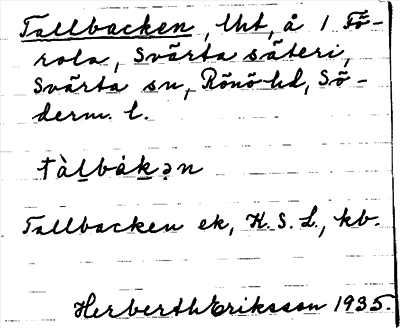 Tallbacken, lht, å 1 Fö-
rola, Svärta säteri,
Svärta sn, Rönö hd, Sö-
derm. l.
tàlbákən
Tallbacken ek, H.S.L., kb.
Herberth Eriksson 1935.